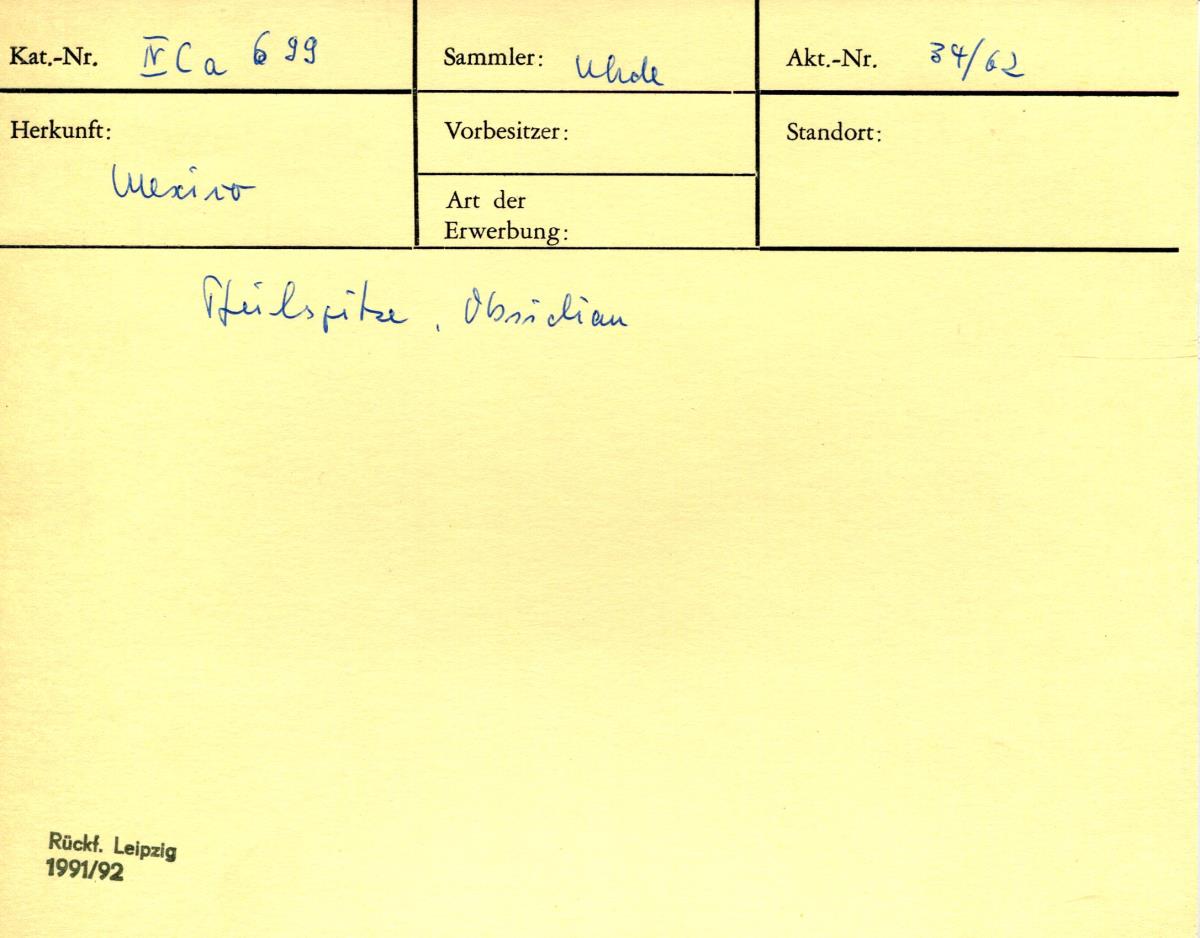 Kat.-Nr. IV Ca 699
Sammler: Uhde
Akt.-Nr. 34/62
Herkunft:
Mexico
Vorbesitzer:
Art der
Erwerbung:
Standort:
Pfeilspitze, Obsidian
Rückf. Leipzig
1991/92